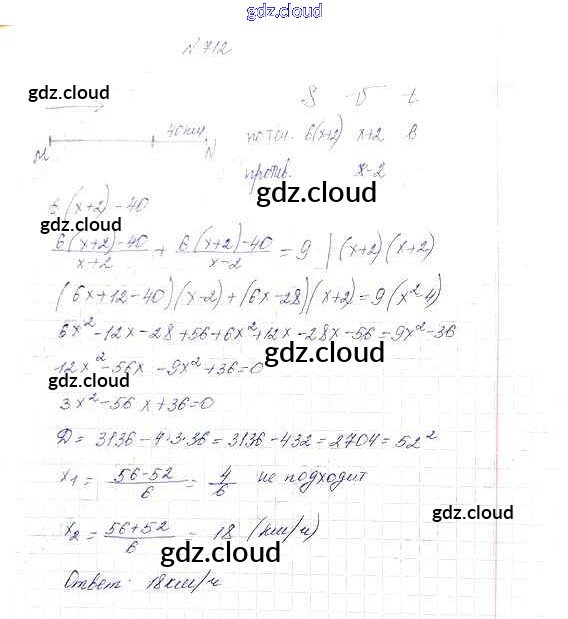 gdz.cloud
N 712
gdz.cloud
S v t
40 км
M N
по теч. 6(x+2) x+2 6
против. x-2
gdz.cloud
6(x+2)-40
6(x+2)-40 / x+2 + 6(x+2)-40 / x-2 = 9 | (x+2)(x+2)
(6x+12-40)(x-2)+(6x-28)(x+2)=9(x²-4)
6x²-12x-28+56+6x²+12x-28x-56=9x²-36
gdz.cloud
12x²-56x-9x²+36=0
gdz.cloud
3x²-56x+36=0
D = 3136-4·3·36=3136-432=2704=52²
x₁ = 56-52 / 6 = 4 / 6 не подходит
gdz.cloud
x₂ = 56+52 / 6 = 18 (км/ч)
gdz.cloud
Ответ: 18 км/ч